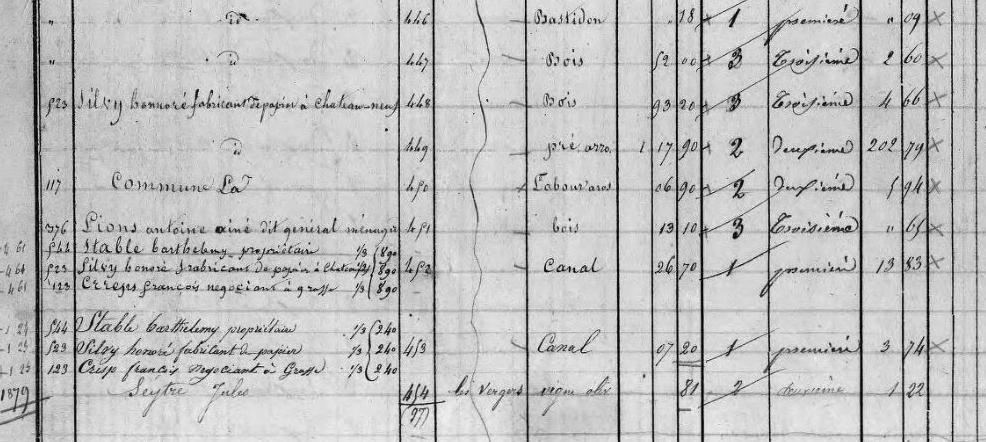 " id 446 Bastidon 18 x 1 première " 09 x
" id 447 Bois 52 00 x 3 Troisième 2 60 x
523 Silvy honnoré fabricant de papier à Chateau-neuf 448 Bois 93 20 x 3 Troisième 4 66 x
id 449 pré arro. 1 17 90 x 2 Deuxième 202 79 x
117 Commune La 450 Labour aros 06 90 x 2 Deuxième 5 94 x
376 Lions antoine ainé dit général ménager 451 bois 13 10 x 3 Troisième " 65 x
4 61 544 Stable barthelemy propriétaire 1/3 890
4 61 523 Silvy honoré fabricant de papier à Chateauf 1/3 890 452 Canal 26 70 1 première 13 83 x
4 61 123 Cresps françois negociant à grasse 1/3 890
1 24 544 Stable barthelemy propriétaire 1/3 240
1 25 523 Silvy honoré fabricant de papier 1/3 240 453 Canal 07 20 1 première 3 74 x
1 25 123 Crisp françois negociant à Grasse 1/3 240
1879 Seytre Jules 454 les Vergers vigne oliv 81 2 1 22
(97)